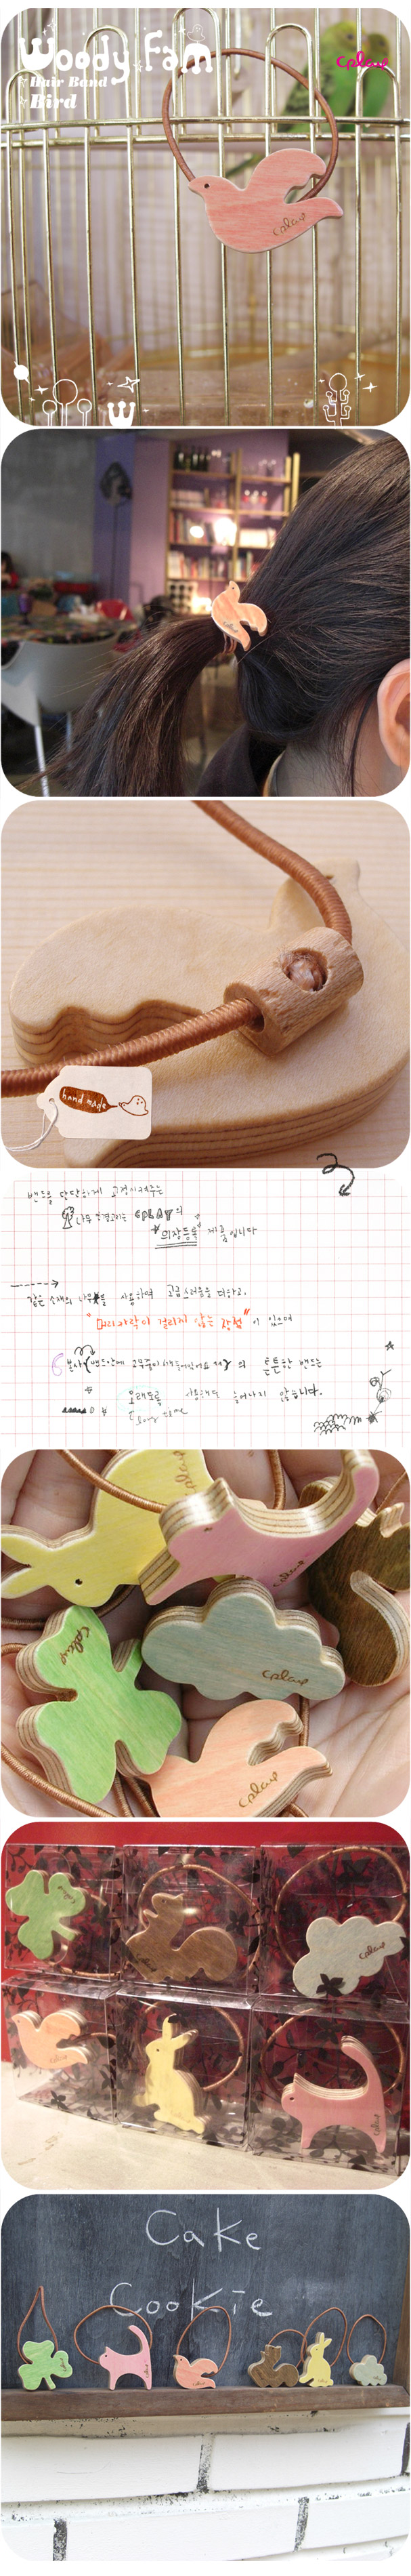 Woody Fam
Hair Band
Bird
cplay
cplay
cplay
hand made
밴드를 단단하게 고정시켜주는
나무 연결고리는 CPLAY의
"의장등록" 제품입니다
같은 소재의 나무를 사용하여 고급스러움을 더하고,
"머리카락이 걸리지 않는 장점"이 있으며
의 튼튼한 밴드는
오래도록 사용해도 늘어나지 않습니다.
long time
cplay
cplay
cplay
cplay
cplay
cplay
cplay
cplay
Cake
Cookie